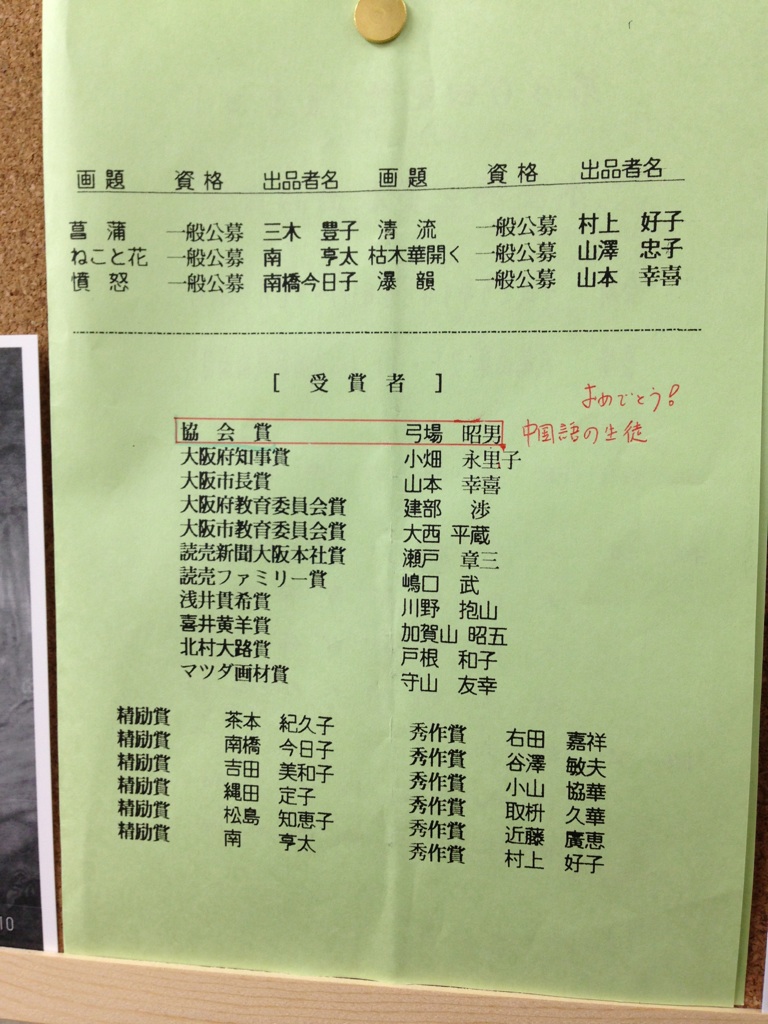 画題 資格 出品者名 画題 資格 出品者名
菖蒲 一般公募 三木 豊子 清流 一般公募 村上 好子
ねこと花 一般公募 南 亨太 枯木華開く 一般公募 山澤 忠子
憤怒 一般公募 南橋今日子 瀑韻 一般公募 山本 幸喜
[ 受賞者 ]
おめでとう!
協会賞 弓場 昭男 中国語の生徒
大阪府知事賞 小畑 永里子
大阪市長賞 山本 幸喜
大阪府教育委員会賞 建部 渉
大阪市教育委員会賞 大西 平蔵
読売新聞大阪本社賞 瀬戸 章三
読売ファミリー賞 嶋口 武
浅井貫希賞 川野 抱山
喜井黄羊賞 加賀山 昭五
北村大路賞 戸根 和子
マツダ画材賞 守山 友幸
精励賞 茶本 紀久子 秀作賞 右田 嘉祥
精励賞 南橋 今日子 秀作賞 谷澤 敏夫
精励賞 吉田 美和子 秀作賞 小山 協華
精励賞 縄田 定子 秀作賞 取枡 久華
精励賞 松島 知恵子 秀作賞 近藤 廣恵
精励賞 南 亨太 秀作賞 村上 好子
10